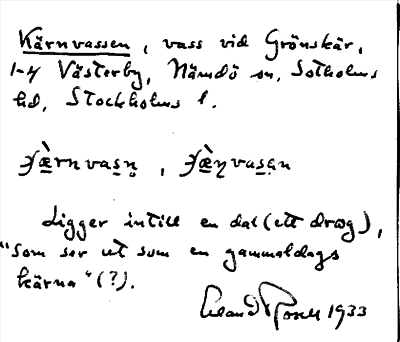 Kärnvassen, vass vid Grönskär,
1-4 Västerby, Nämdö sn, Sotholms
hd, Stockholms l.
Ligger intill en dal (ett drog),
"som ser ut som en gammaldags
kärna" (?).
1933